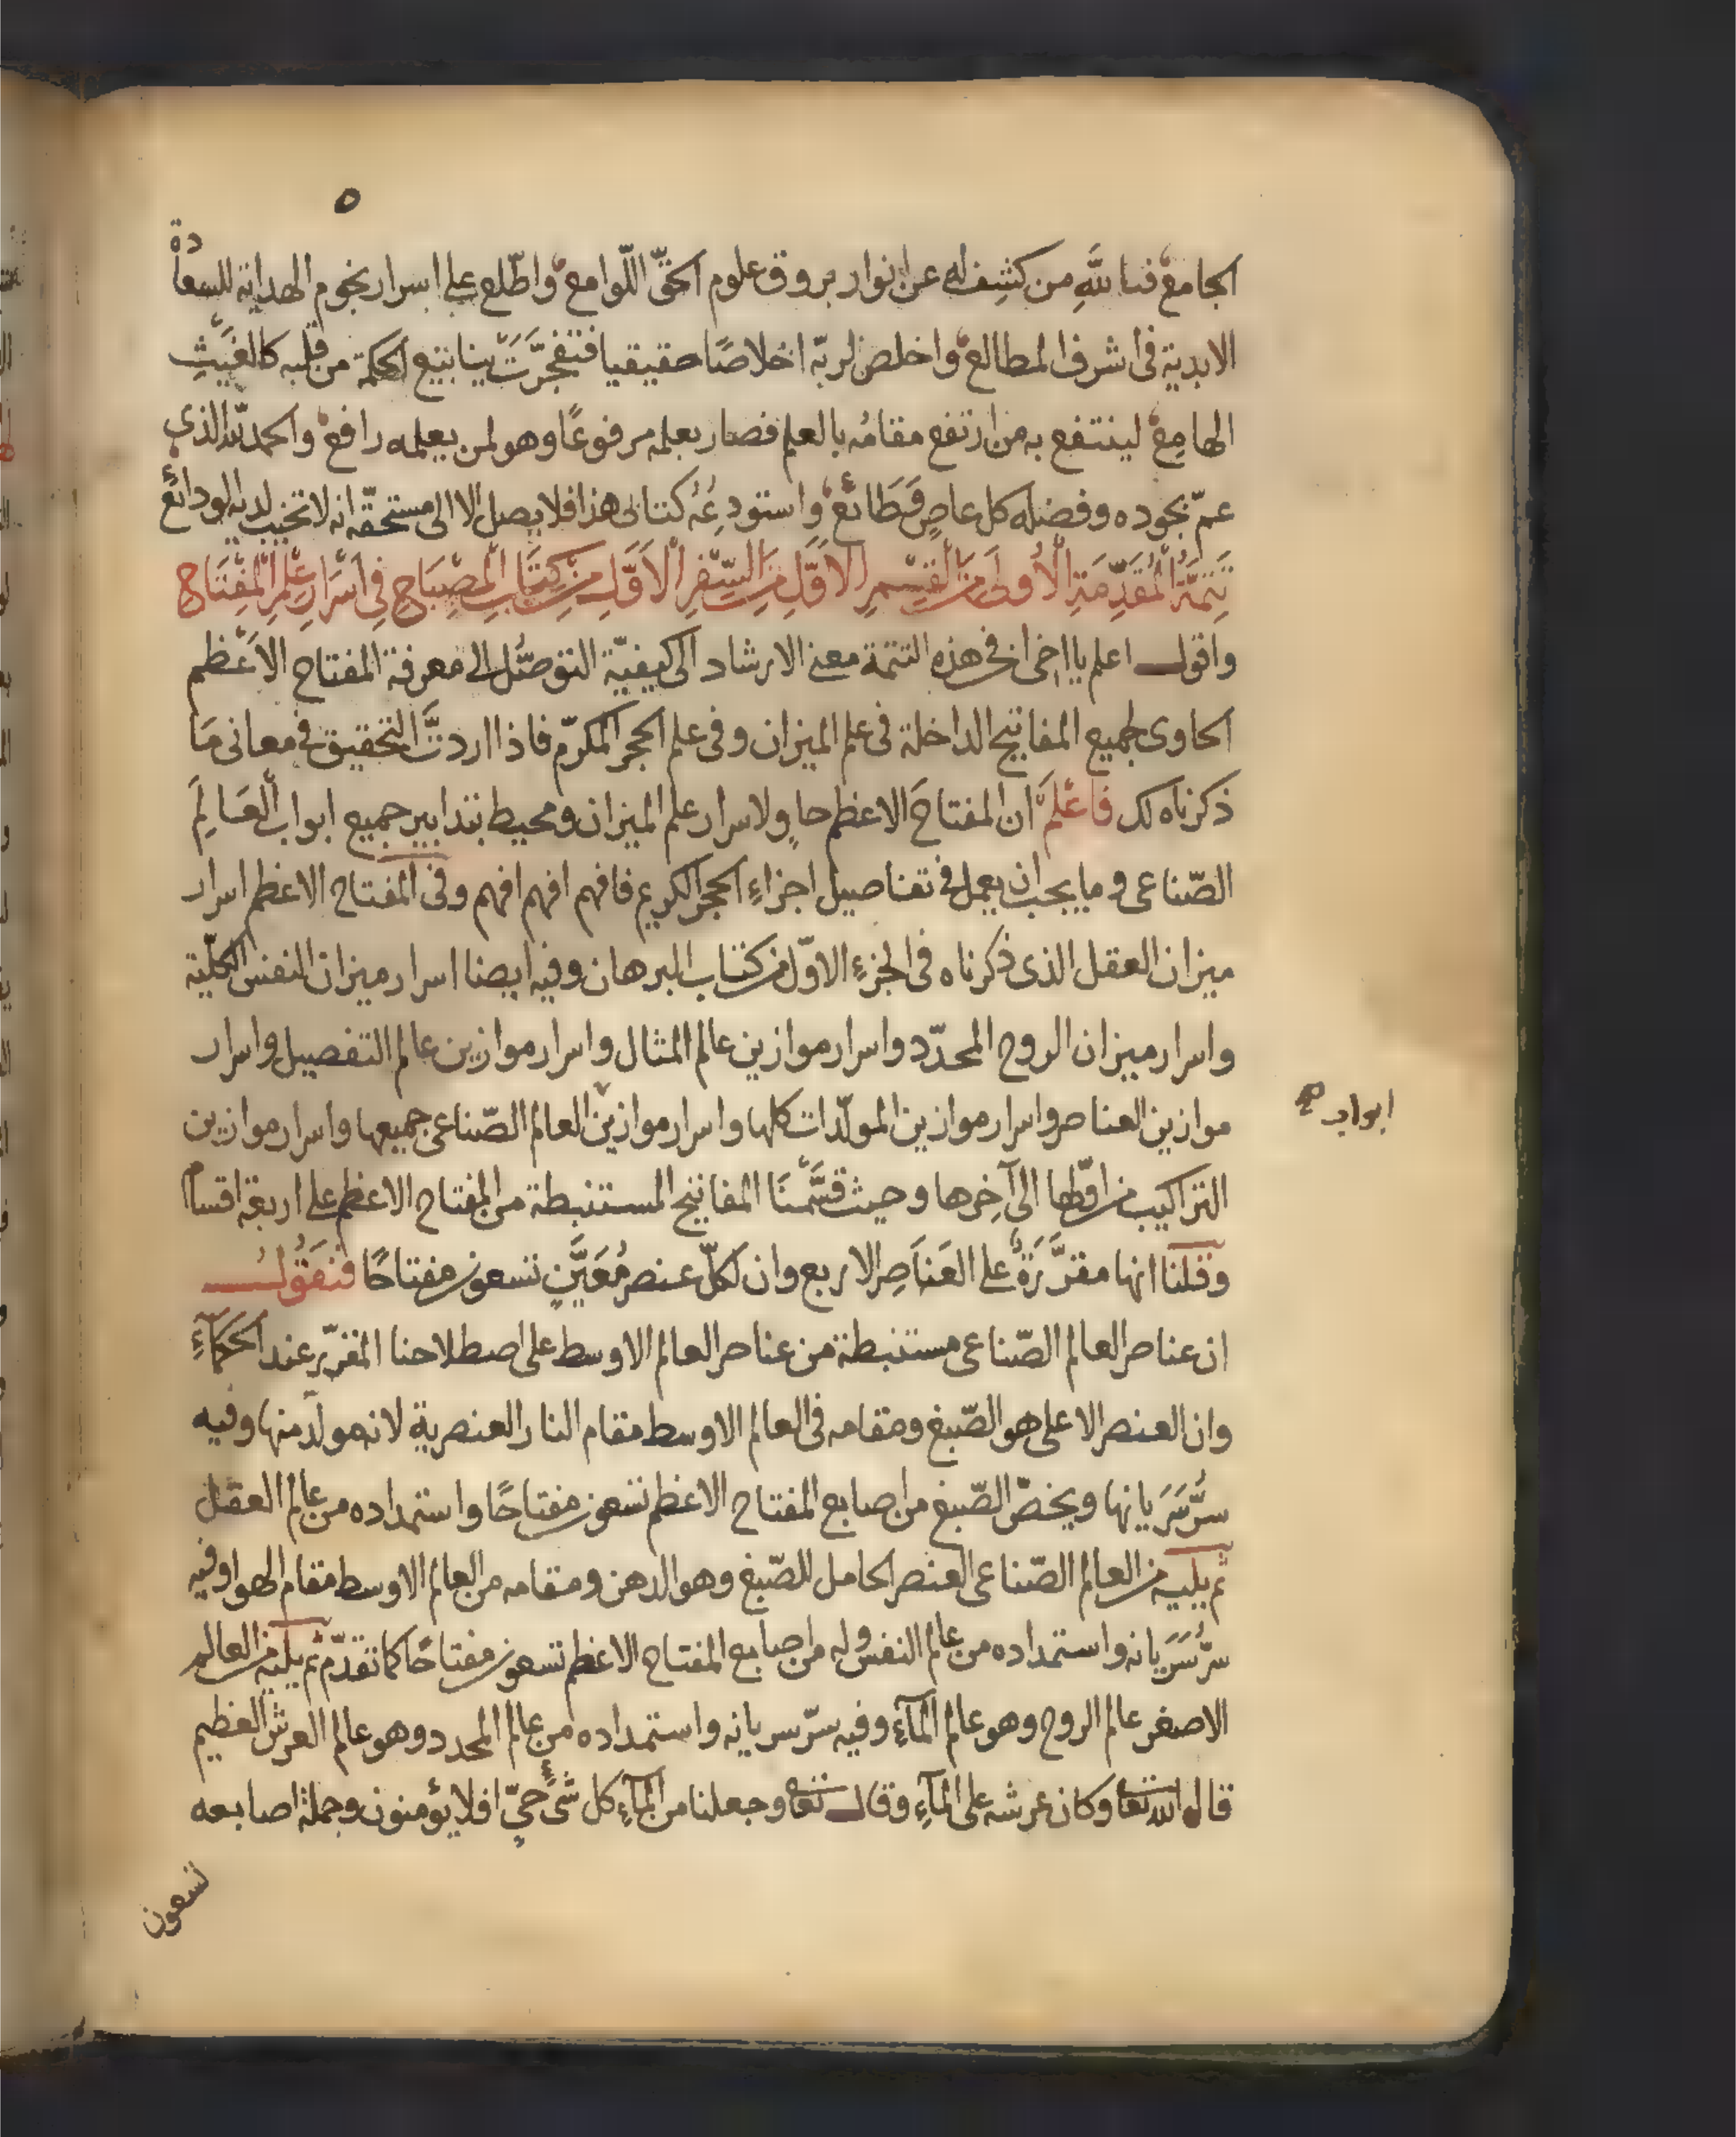 ٥
الجامع فيالله من كشف له عن انوار بروق علوم الحقّ اللّوامع واطّلع على اسرار نجوم الهداية للسعادة
الابدية فى اشرف المطالع واخلص لربّه اخلاصًا حقيقيا فتفجّرت ينابيع الحكمة من قلبه كالغيث
الهامع لينتفع به من ارتفع مقامُه بالعلم فصار بعلمه مرفوعًا وهو لمن يعلمه رافع والحمد لله الذى
عمّ بجوده وفضله كل عاصٍ وَطَائع واستودعُه كتابى هذا فلا يصل الا الى مستحقّه انه لا تخيب لديه الودائع
تَتِمَّةُ الْمُقَدِّمَةِ الْأُولَى مِنَ الْقِسْمِ الْأَوَّلِ مِنَ السِّفْرِ الْأَوَّلِ مِنْ كِتَابِ الْمِصْبَاحِ فِى أَسْرَارِ عِلْمِ الْمِفْتَاحِ
واقول اعلم يا اخى ان فى هذه التتمة معنى الارشاد الى كيفيّة التوصّل الى معرفة المفتاح الاَعْظم
الحاوى لجميع المفاتيح الداخلة فى علم الميزان وفى علم الحجر المكرّم فاذا اردتَّ التحقيق فى معانى مَا
ذكرناه لك فاعْلَمْ ان المفتاحَ الاعظم حاوٍ لاسرار علم الميزان ومحيط بتدابير جميع ابواب العَالِمَ
الصّناعى وما يجب ان يعمل فى تفاصيل اجزاءِ الحجر الكريم فافهم افهم افهم وفى المفتاح الاعظم اسرار
ميزان العقل الذى ذكرناه فى الجزءِ الاوّل من كتاب البرهان وفيه ايضا اسرار ميزان النفس الكلّية
واسرار ميزان الروح المحدّد واسرار موازين عالم المثال واسرار موازين عالم التفصيل واسرار
موازين العناصر واسرار موازين المولّدات كلها واسرار موازين العالم الصّناعى جميعها واسرار موازين
ابواب صح
التراكيب من اوّلها الى آخِرها وحيث قسَّمْنَا المفاتيح المستنبطة من المفتاح الاعظم على اربعة اقسام
وقلنا انها مقرَّرَةٌ على العَنَاصِر الاربع وان لكلّ عنصر مُعَيَّنٍ تسعون مفتاحًا فنَقُولُ
ان عناصر العالم الصّناعى مستنبطة من عناصر العالم الاوسط على اصطلاحنا المقرّر عند الحكمآءِ
وان العنصر الاعلى هو الصّبغ ومقامه فى العالم الاوسط مقام النار العنصرية لانه مولّد منها وفيه
سرُّ سَرَيانها ويخصّ الصّبغ من اصابع المفتاح الاعظم تسعون مفتاحًا واستمداده من عالم العقل
ثم يليه من العالم الصّناعى العنصر الحامل للصّبغ وهو الدهن ومقامه من العالم الاوسط مقام الهوا وفيه
سرّ سَرَيانه واستمداده من عالم النفس وله من اصابع المفتاح الاعظم تسعون مفتاحًا كما تقدّم ثم يليه من العالم
الاصغر عالم الروح وهو عالم المآءِ وفيه سرّ سريانه واستمداده من عالم المحدد وهو عالم العرش العظيم
قال الله تعا وكان عرشه على المآءِ وقال تعا وجعلنا من المآءِ كل شئٍ حىّ افلا يؤمنون وجملة اصابعه
تسعون